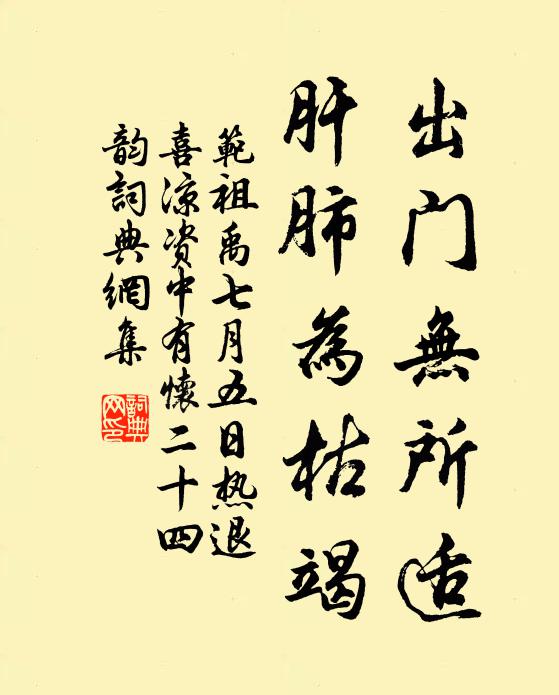 出门無所适
肝肺為枯竭
範祖禹七月五日热退
喜涼资中有懷二十四
韵詞典網集
詞典
网印